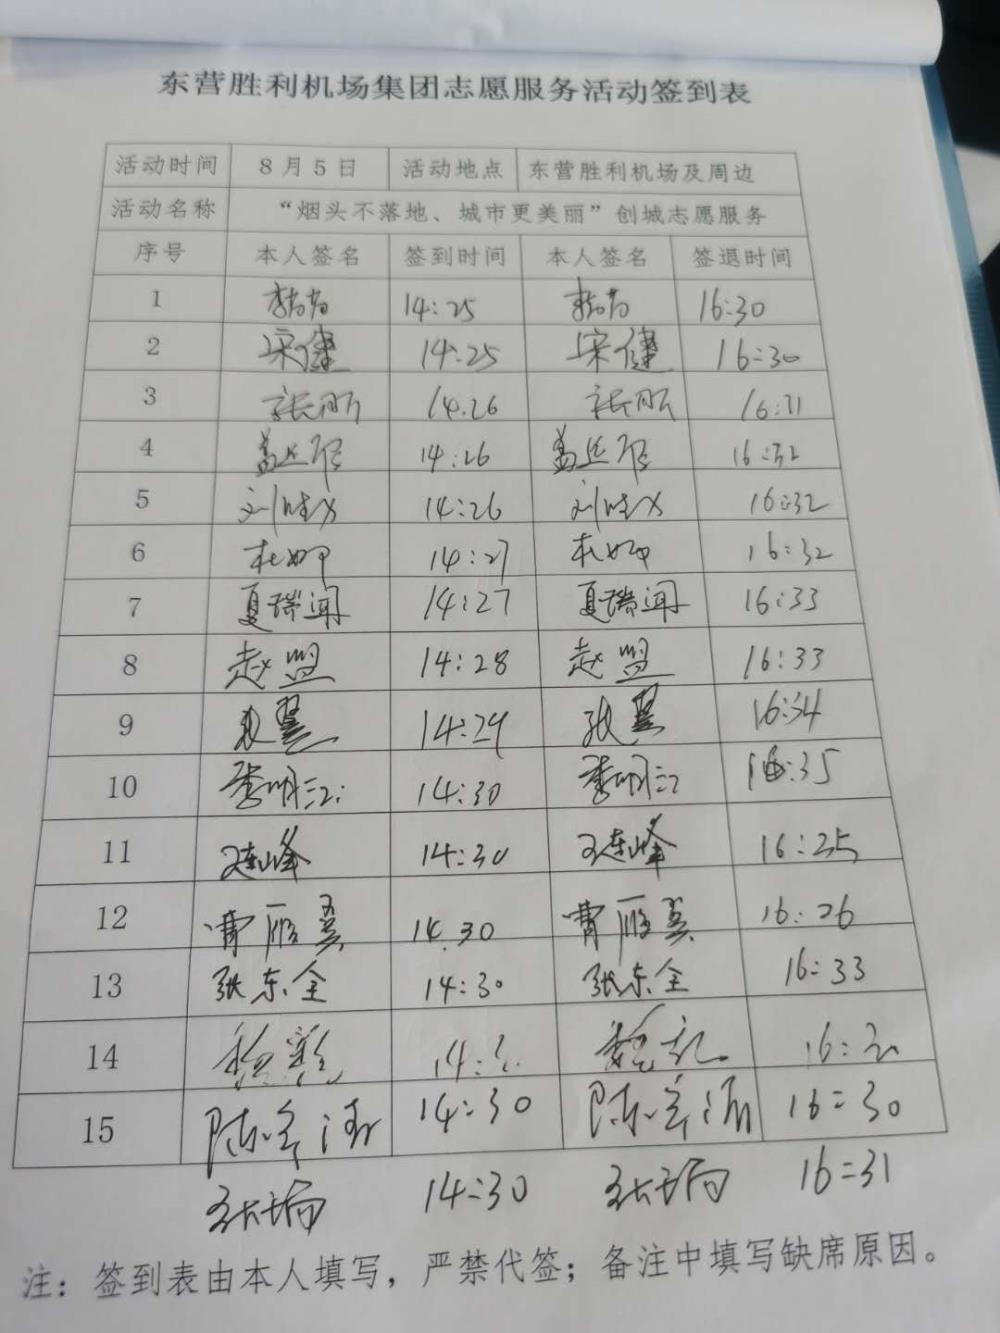 东营胜利机场集团志愿服务活动签到表
活动时间 8月5日 活动地点 东营胜利机场及周边
活动名称 “烟头不落地、城市更美丽”创城志愿服务
序号 本人签名 签到时间 本人签名 签退时间
1 14:25 16:30
2 宋健 14:25 宋健 16:30
3 14.26 16:31
4 14:26 16:32
5 14:26 16:32
6 14:27 16:32
7 夏瑞闻 14:27 夏瑞闻 16:33
8 赵盟 14:28 赵盟 16:33
9 14:29 张 16:34
10 李明江 14:30 李明江 16:35
11 王连峰 14:30 王连峰 16:25
12 曹雁 14.30 曹雁 16:26
13 张东全 14:30 张东全 16:33
14 14: 16:
15 陈 14:30 陈 16:30
14:30 16:31
注：签到表由本人填写，严禁代签；备注中填写缺席原因。